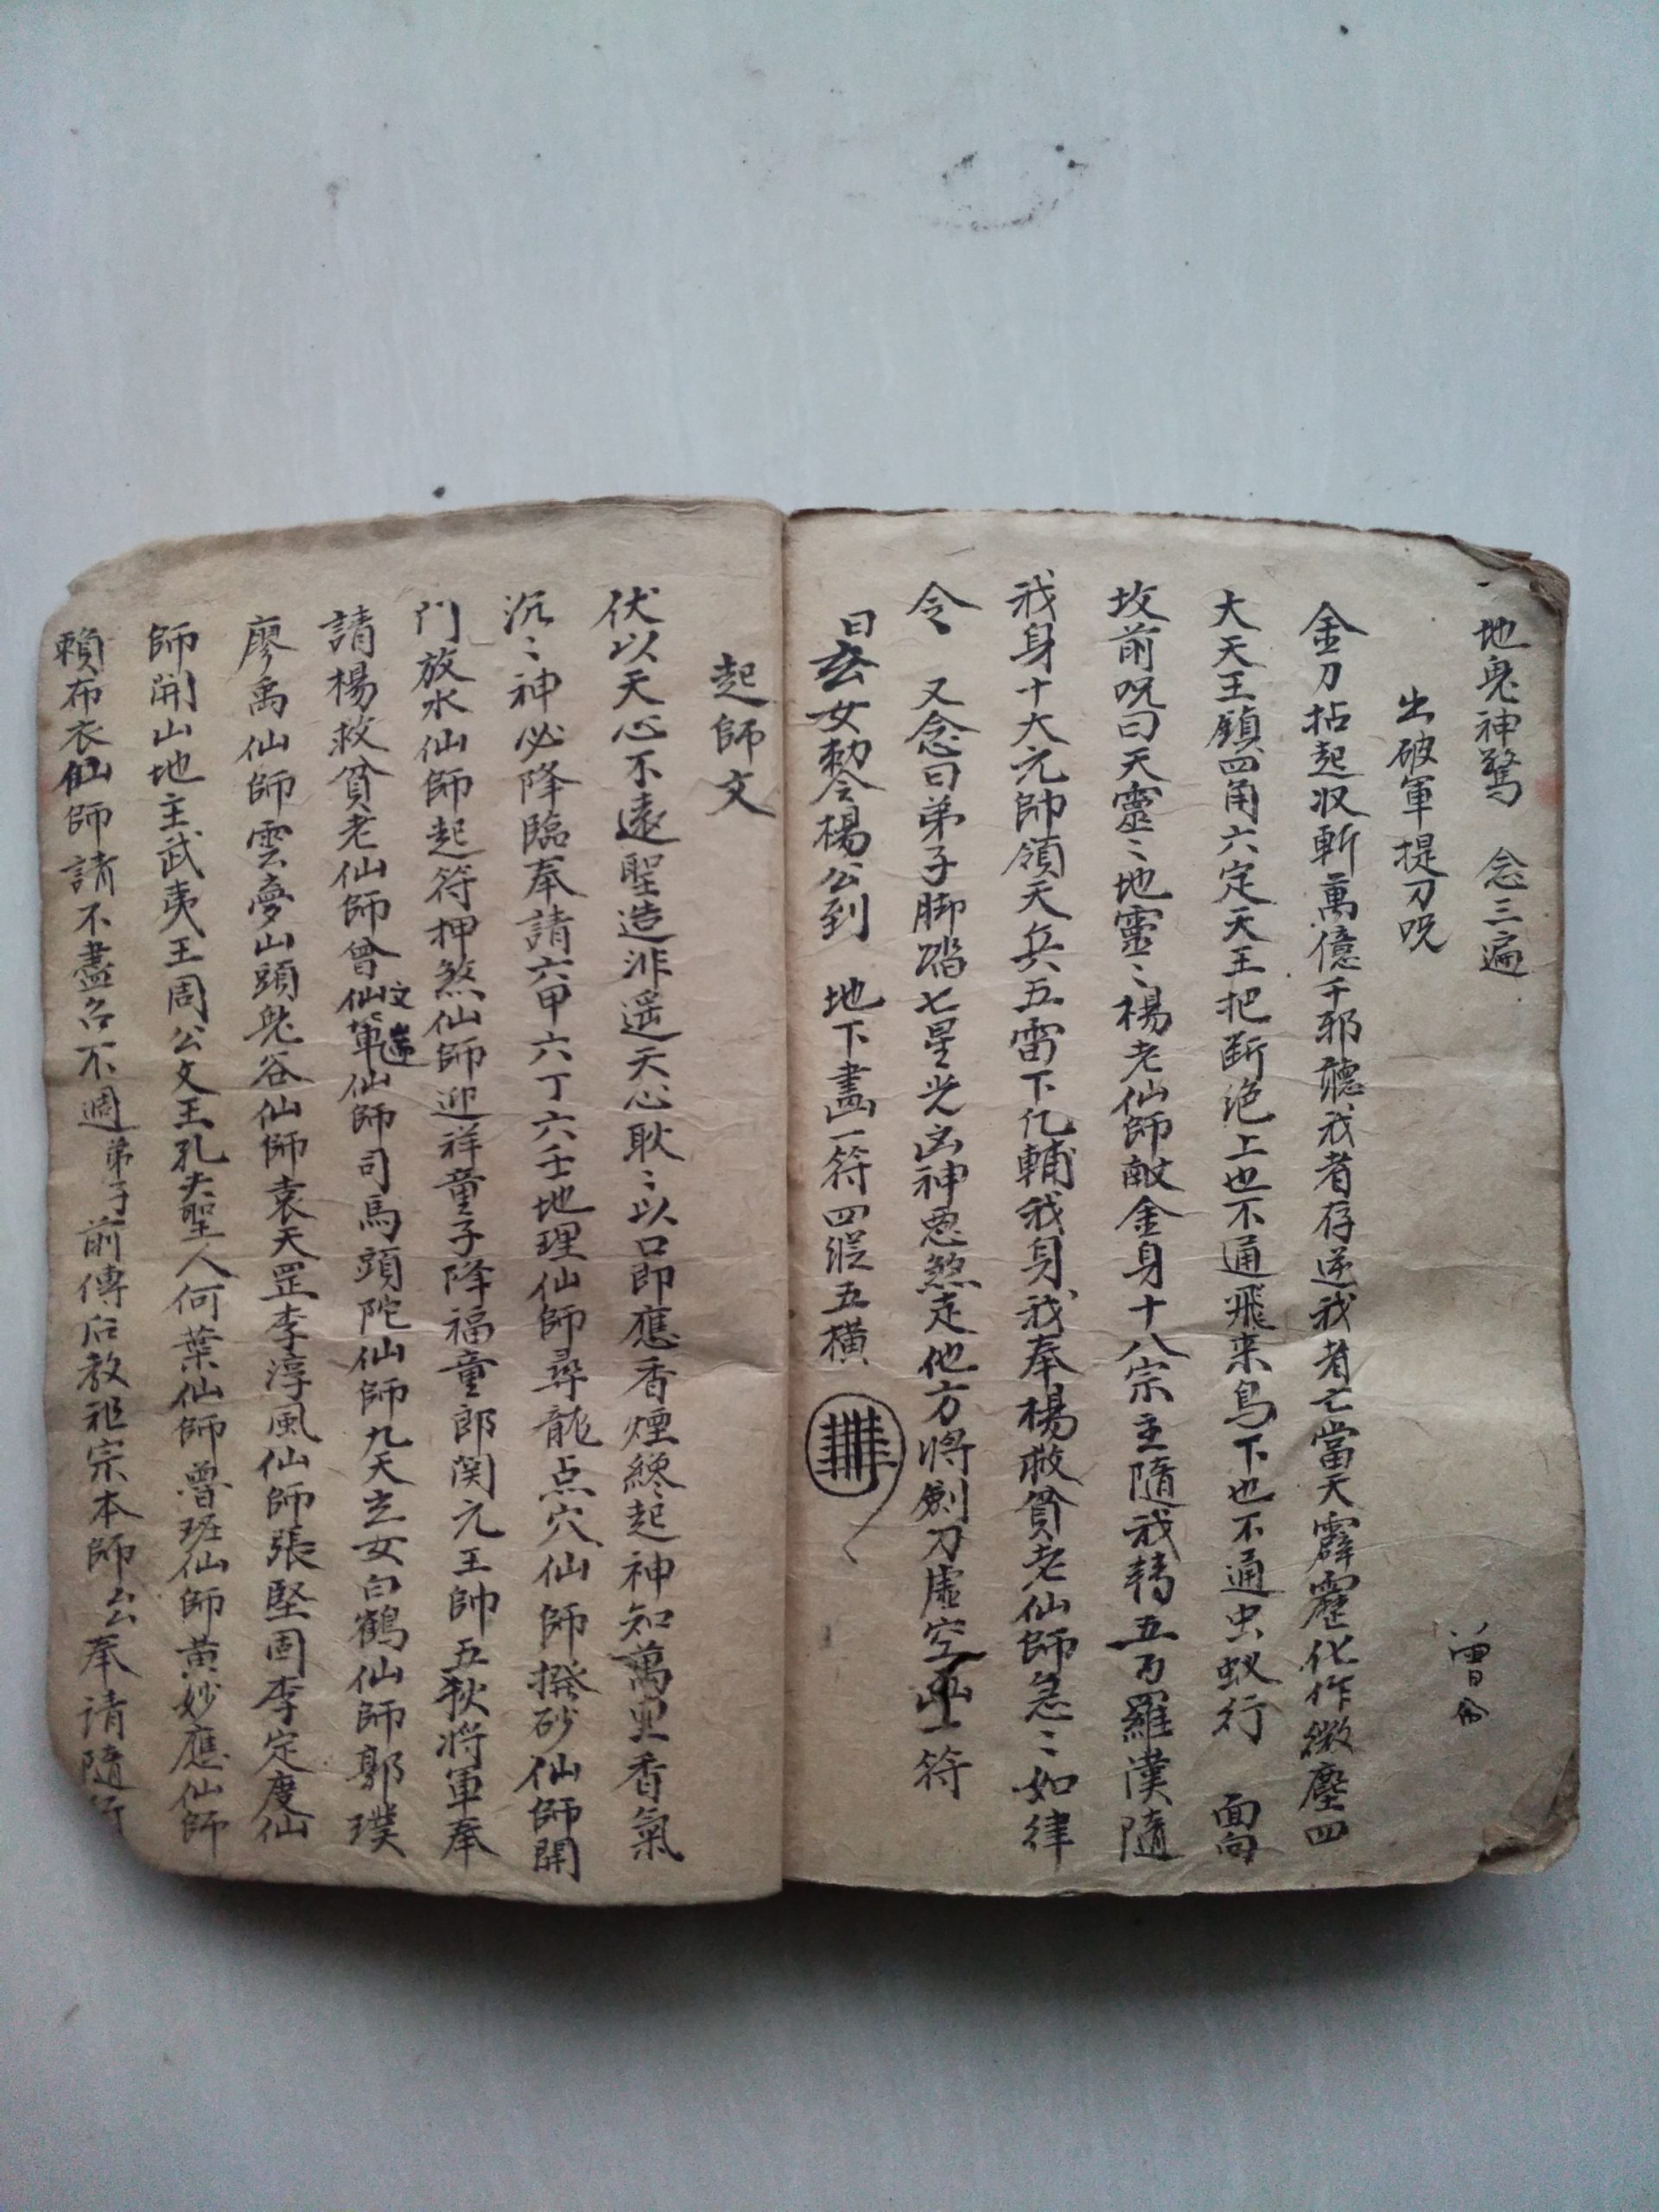 地鬼神驚　念三遍
曾
出破軍提刀咒
金刀拈起収斬萬億千邪聽我者存逆我者亡當天霹靂化作微塵四
大天王鎮四角六定天王把断絶上也不通飛来鳥下也不通虫蚁行　面向
坟前咒曰天靈〻地靈〻楊老仙師敵金身十八宗主隨我轉五百羅漢隨
我身十大元帥領天兵五雷下化輔我身我奉楊救貧老仙師急〻如律
令　又念曰弟子脚踏七星光凶神恶煞走他方將劍刀虛空画一符
曰玄女勅令楊公到　地下畫一符四縱五横
起師文
伏以天心不遠聖造非遥天心耿〻以口即應香煙纔起神知萬里香氣
沉〻神必降臨奉請六甲六丁六壬地理仙師尋龍点穴仙師撥砂仙師開
門放水仙師起符押煞仙師迎祥童子降福童郎関元王帥五狄將軍奉
請楊救貧老仙師曾文辿仙軍仙師司馬頭陀仙師九天玄女白鶴仙師郭璞
廖禹仙師雲夢山頭鬼谷仙師袁天罡李淳風仙師張堅固李定度仙
師開山地主武夷王周公文王孔夫聖人何葉仙師魯班仙師黄妙應仙師
賴布衣仙師請不盡名不週弟子前傳后教祖宗本師公奉请隨行